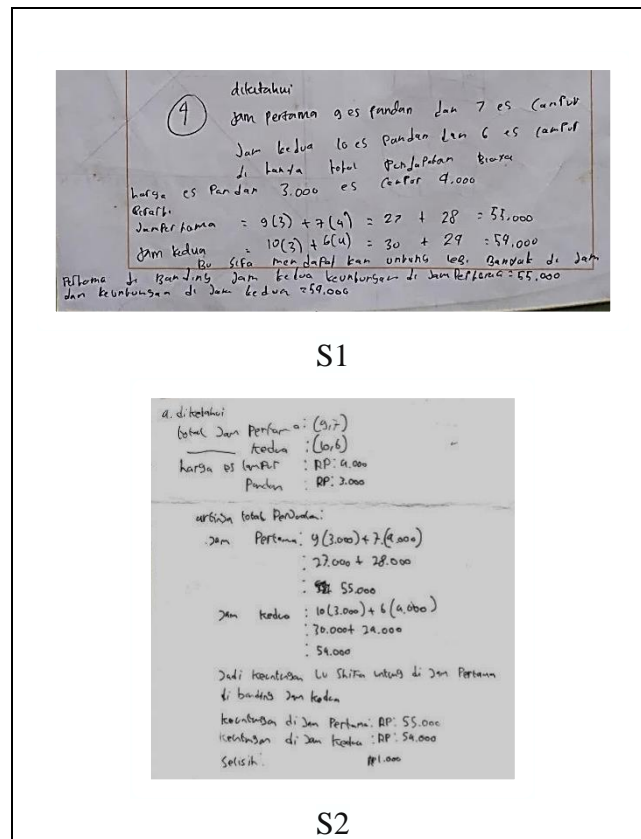 diketahui
4 Jam Pertama 9 es pandan dan 7 es Campur
Jam kedua 10 es Pandan dan 6 es campur
di tanya total Pendapatan
harga es Pandan 3.000 es campur 4.000
Jam Pertama = 9(3) + 7(4) = 27 + 28 = 55.000
Jam kedua = 10(3) + 6(4) = 30 + 24 = 54.000
Bu Sifa mendapat kan untung lebi Banyak di Jam
Pertama di Banding Jam kedua keuntungan di Jam Pertama = 55.000
dan keuntungan di Jam kedua = 54.000
S1
a. diketahui
total Jam Pertama : (9,7)
kedua : (10,6)
harga es Campur : RP. 4.000
Pandan : RP. 3.000
total Penjualan:
Jam Pertama : 9(3.000) + 7.(4.000)
: 27.000 + 28.000
: 55.000
Jam kedua : 10(3.000) + 6(4.000)
: 30.000 + 24.000
: 54.000
Jadi keuntungan untung di Jam Pertama
di banding Jam kedua
keuntungan di Jam Pertama : RP. 55.000
keuntungan di Jam kedua : RP. 54.000
Selisih : RP1.000
S2